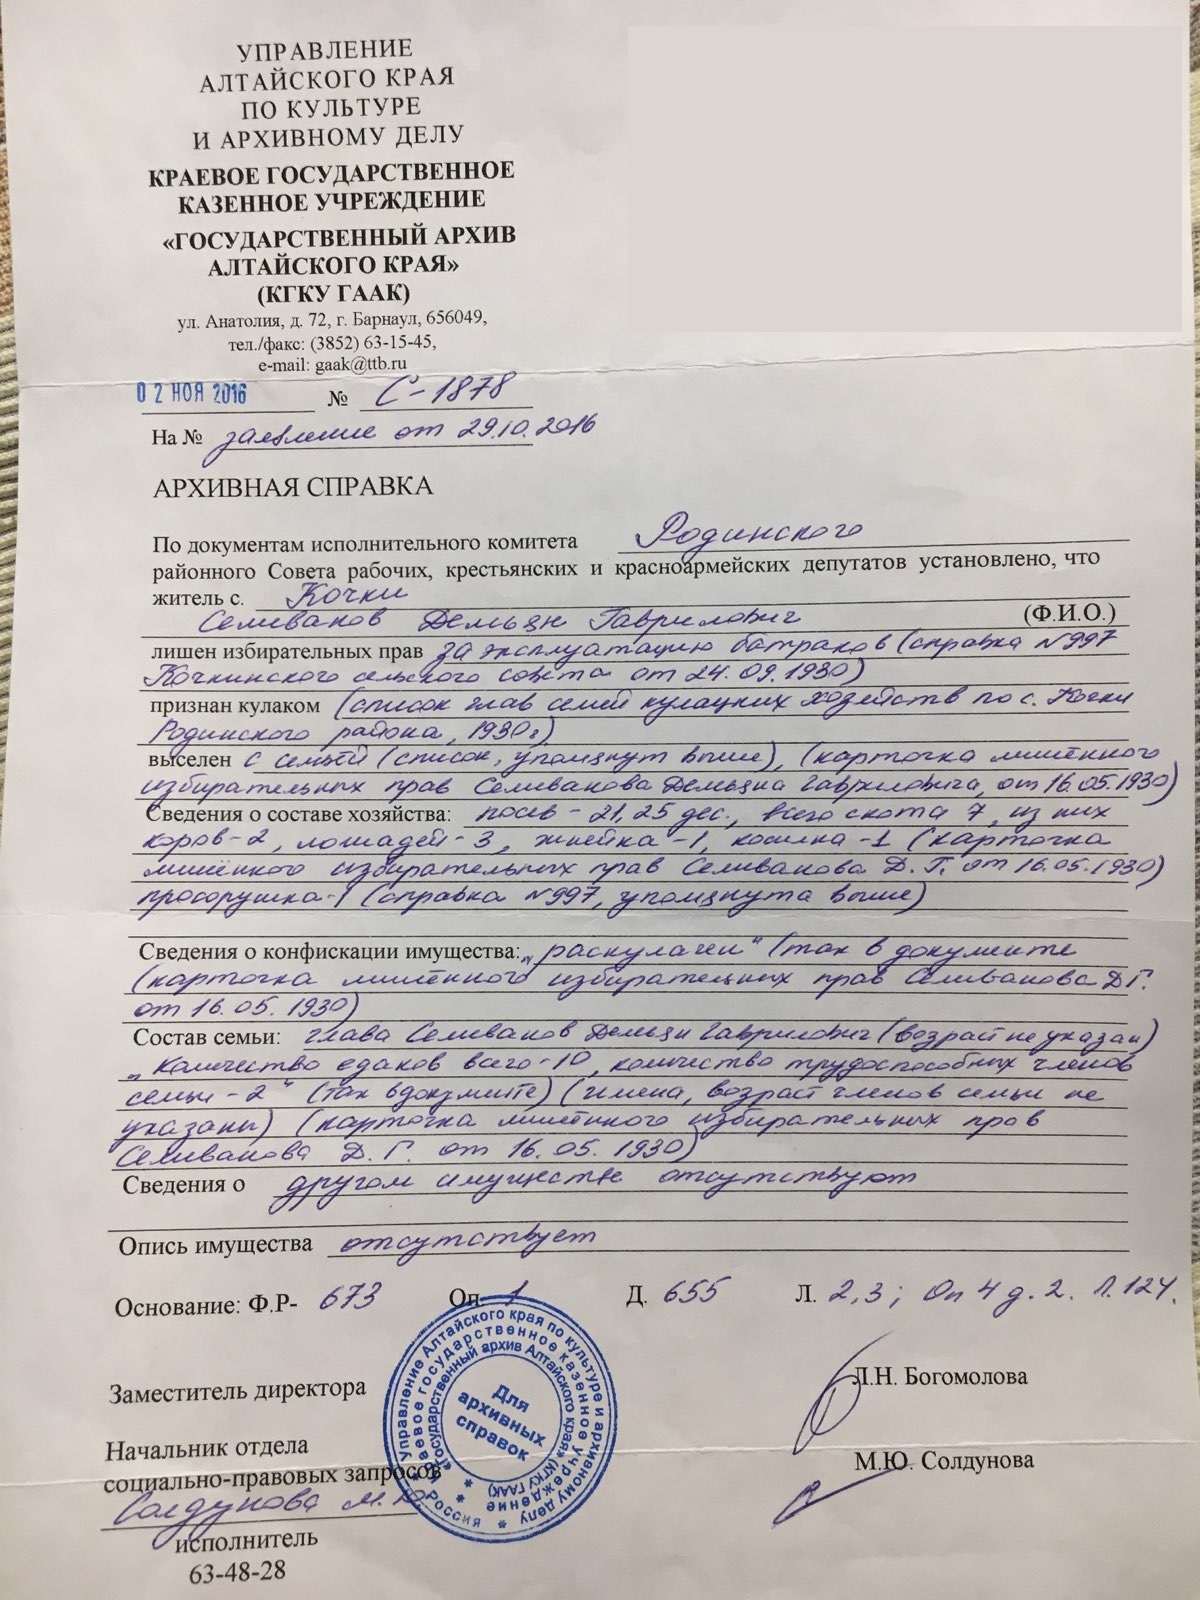 УПРАВЛЕНИЕ
АЛТАЙСКОГО КРАЯ
ПО КУЛЬТУРЕ
И АРХИВНОМУ ДЕЛУ
КРАЕВОЕ ГОСУДАРСТВЕННОЕ
КАЗЕННОЕ УЧРЕЖДЕНИЕ
«ГОСУДАРСТВЕННЫЙ АРХИВ
АЛТАЙСКОГО КРАЯ»
(КГКУ ГААК)
ул. Анатолия, д. 72, г. Барнаул, 656049,
тел./факс: (3852) 63-15-45,
e-mail: gaak@ttb.ru
02 НОЯ 2016 № С-1878
На № заявление от 29.10.2016
АРХИВНАЯ СПРАВКА
По документам исполнительного комитета Родинского
районного Совета рабочих, крестьянских и красноармейских депутатов установлено, что
житель с. Кочки
Селиванов Демьян Гаврилович (Ф.И.О.)
лишен избирательных прав за эксплуатацию батраков (справка №997
Кочкинского сельского совета от 24.09.1930)
признан кулаком (список глав семей кулацких хозяйств по с. Кочки
Родинского района, 1930г)
выселен с семьёй (список, упомянут выше), (карточка лишённого
избирательных прав Селиванова Демьяна Гавриловича, от 16.05.1930)
Сведения о составе хозяйства: посев - 21,25 дес., всего скота 7, из них
коров-2, лошадей-3, жнейка-1, косилка-1 (карточка
лишённого избирательных прав Селиванова Д.Г. от 16.05.1930)
просорушка-1 (справка №997, упомянута выше)
Сведения о конфискации имущества: „раскулачен" (так в документе
(карточка лишённого избирательных прав Селиванова Д.Г.
от 16.05.1930)
Состав семьи: глава Селиванов Демьян Гаврилович (возраст не указан)
„Количество едаков всего-10, количество трудоспособных членов
семьи-2" (так в документе) (имена, возраст членов семьи не
указаны) (карточка лишённого избирательных прав
Селиванова Д.Г. от 16.05.1930)
Сведения о другом имуществе отсутствуют
Опись имущества отсутствует
Основание: Ф.Р- 673 Оп 1 Д. 655 Л. 2,3; Оп 4 д.2. Л.124.
Заместитель директора Л.Н. Богомолова
Начальник отдела
социально-правовых запросов М.Ю. Солдунова
Солдунова М.Ю.
исполнитель
63-48-28
Управление Алтайского края по культуре и архивному делу * Россия *
Краевое государственное казенное учреждение
«Государственный архив Алтайского края» (КГКУ ГААК)
Для
архивных
справок